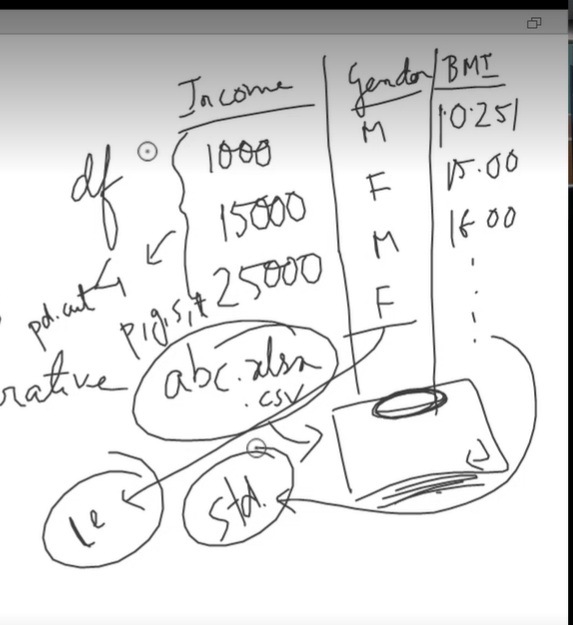 Income Gender BMI
1000 M 10.251
df 15000 F 15.00
25000 M 16.00
pd.cut F
rative abc.xlsx
.csv
le std.